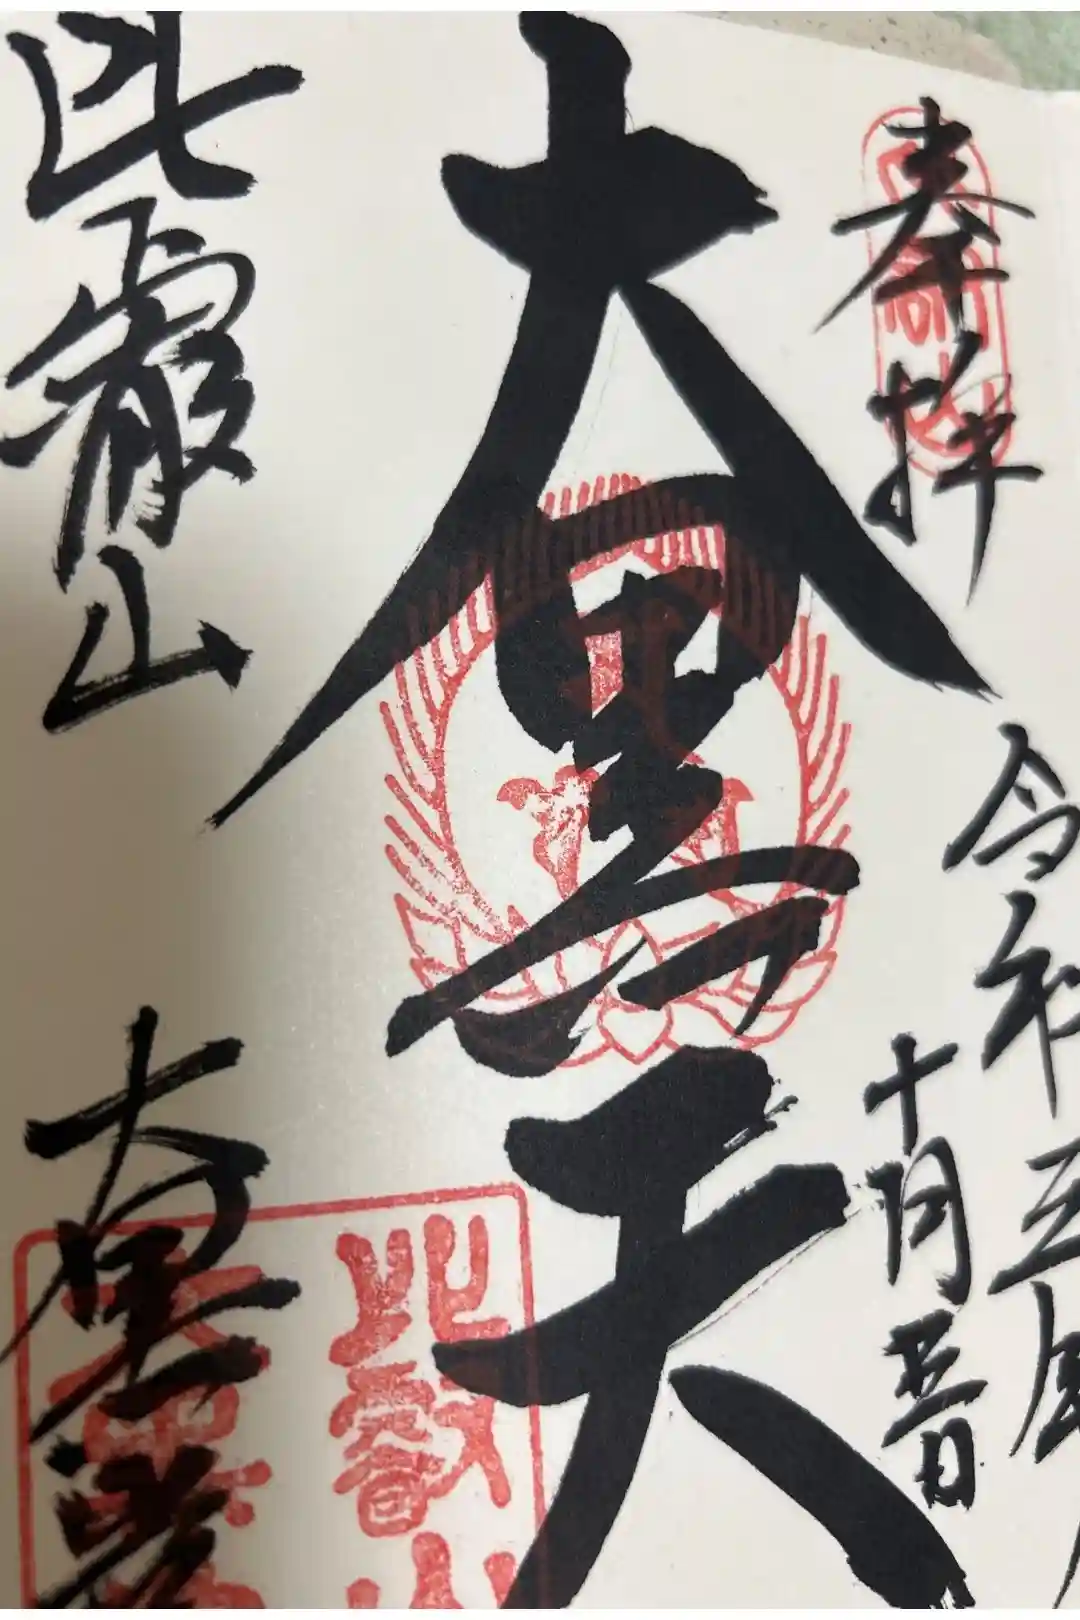 奉拝
令和五年
十月五日
大黒天
比叡山
大黒堂
比叡山